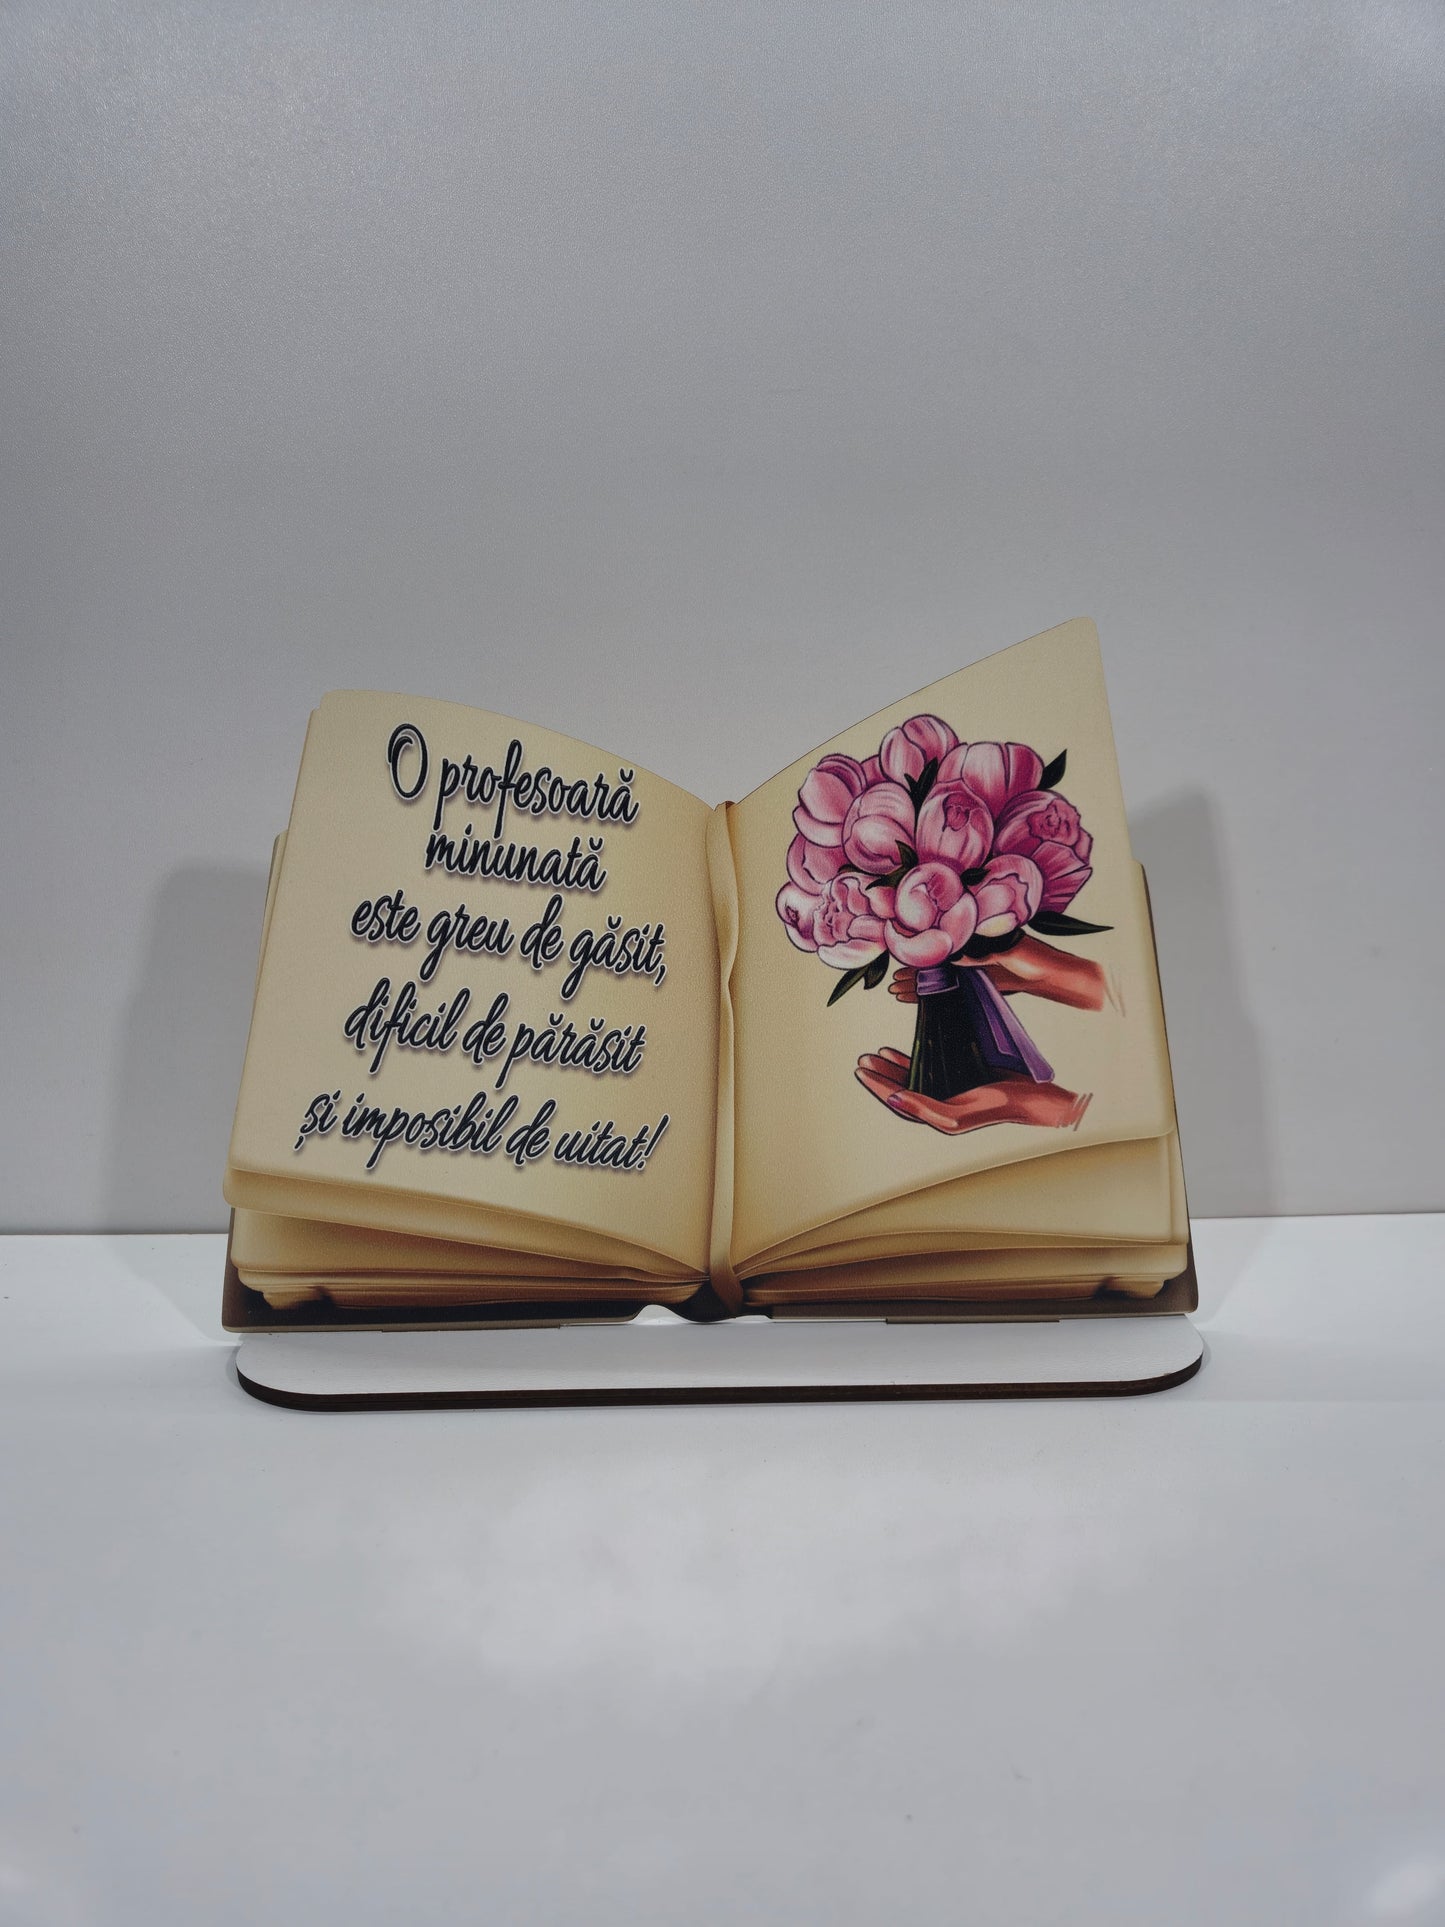 O profesoară
minunată
este greu de găsit,
dificil de părăsit
și imposibil de uitat!